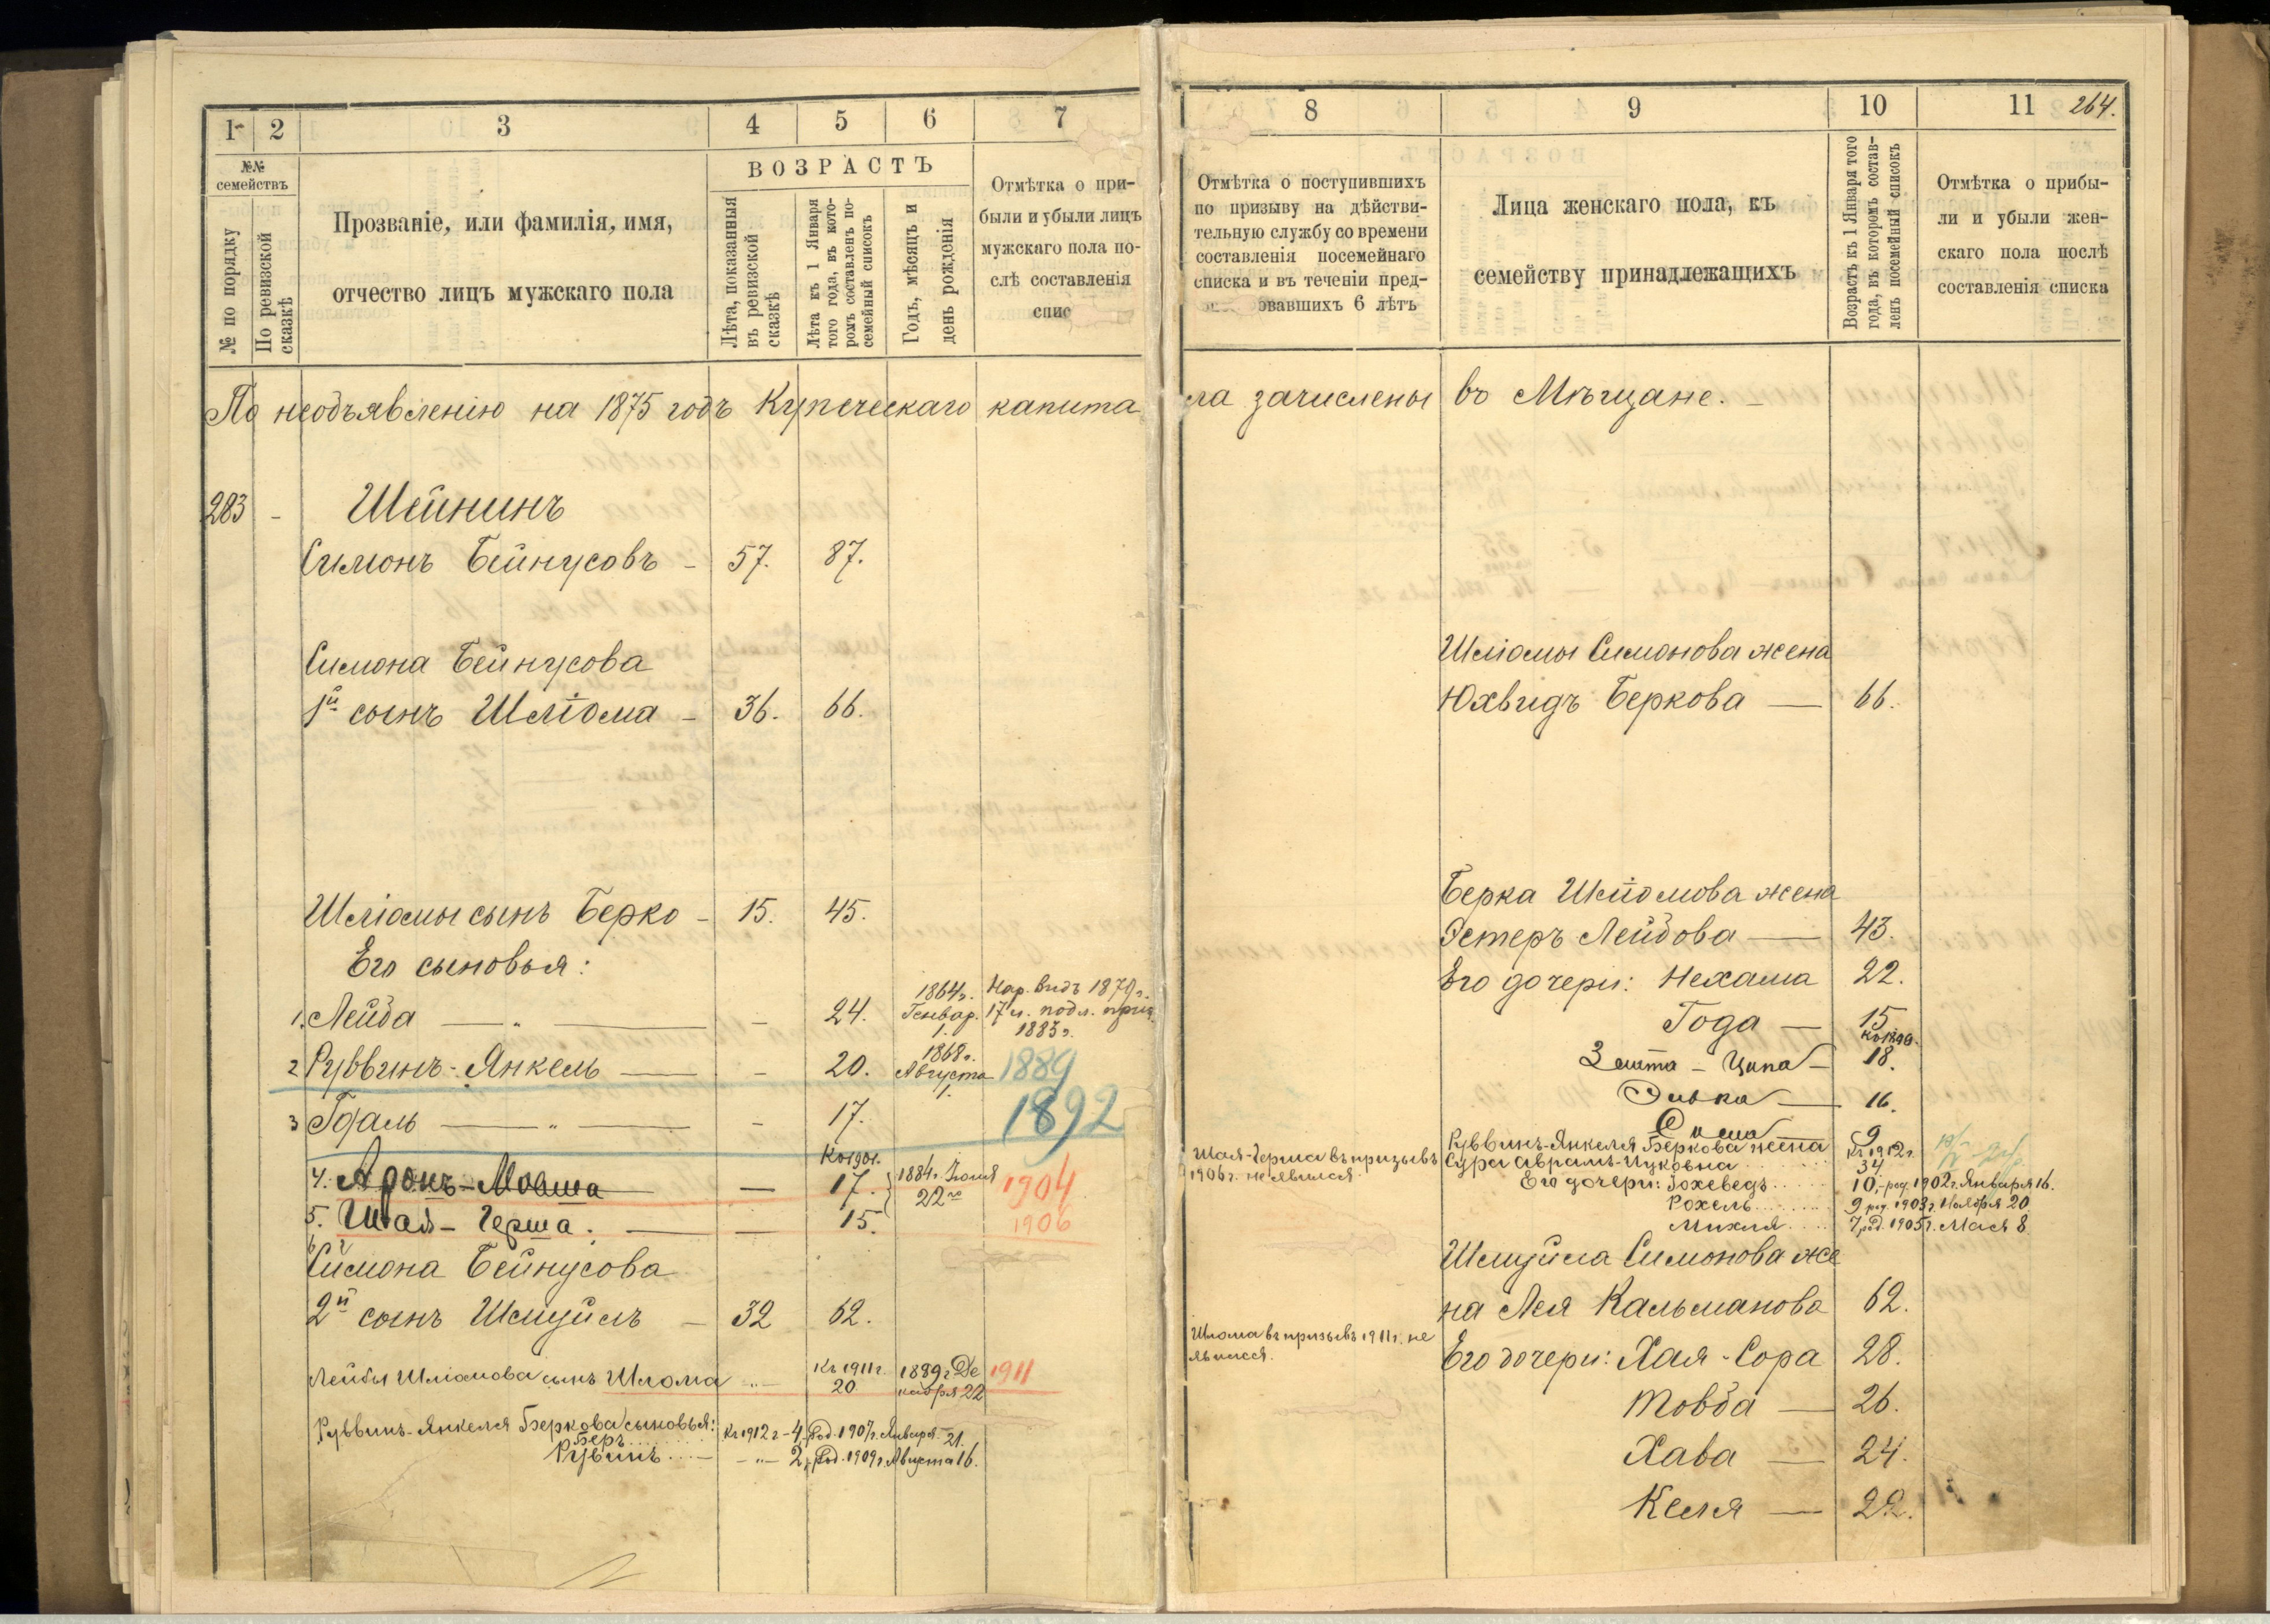 1 2 3 4 5 6 7
№№ семействъ
№ по порядку
По ревизской сказкѣ
Прозваніе, или фамилія, имя,
отчество лицъ мужскаго пола
ВОЗРАСТЪ
Лѣта, показанныя
въ ревизской
сказкѣ
Лѣта къ 1 Января
того года, въ кото-
ромъ составленъ по-
семейный списокъ
Годъ, мѣсяцъ и
день рожденія
Отмѣтка о при-
были и убыли лицъ
мужскаго пола по-
слѣ составленія
спис
По необъявленію на 1875 годъ Купеческаго капита
283 - Шейнинъ
Симонъ Бейнусовъ - 57. 87.
Симона Бейнусова
1й сынъ Шліома - 36. 66.
Шліомы сынъ Берко - 15. 45.
Его сыновья:
1. Лейба — " — - 24. 1864г. Генвар. 1. Нар. видъ 1879г.
17 и. подл. приз.
1883г.
2 Руввинъ-Янкель — - 20. 1868г. Августа 1. 1889
3 Гдаль — " — - 17. 1892
Къ 1901.
4. Аронъ-Мовша — 17. 1884г. Іюля 22го 1904
5. Шая-Герша. — 15. 1906
Симона Бейнусова
2й сынъ Шмуйлъ - 32 62.
Лейбы Шліомова сынъ Шлома - " - Къ 1911г. 20 1889г. Декабря 22 1911
Руввинъ-Янкеля Беркова сыновья:
Беръ Къ 1912г - 4, Род. 1907г. Января 21.
Рувинъ - " - 2, Род. 1909г. Августа 16.
8 9 10 11 264.
Отмѣтка о поступившихъ
по призыву на дѣйстви-
тельную службу со времени
составленія посемейнаго
списка и въ теченіи пред-
овавшихъ 6 лѣтъ
Лица женскаго пола, къ
семейству принадлежащихъ
Возрастъ къ 1 Января того
года, въ которомъ состав-
ленъ посемейный списокъ
Отмѣтка о прибы-
ли и убыли жен-
скаго пола послѣ
составленія списка
ла зачислены въ Мѣщане. -
Шліомы Симонова жена
Юхвидъ Беркова — 66.
Берка Шліомова жена
Эстеръ Лейбова — 43.
Его дочери: Нехама 22.
Года — 15
Злата - Ципа - 18.
Эивка — 16.
Сима 9
Шая-Герша въ призывъ
1906г. не явился.
Руввинъ-Янкеля Беркова жена Къ 1912г.
Сура Аврамъ-Ицковна 34
Его дочери: Іохеведъ 10, - род. 1902г. Января 16.
Рохель 9 род. 1903г. Ноября 20
Михля 7 род. 1905г. Мая 8
Шмуйла Симонова же
на Лея Кальманова 62.
Шлома въ призывъ 1911г. не
явился.
Его дочери: Хая-Сора 28.
Товба — 26.
Хава — 24.
Келя — 22.